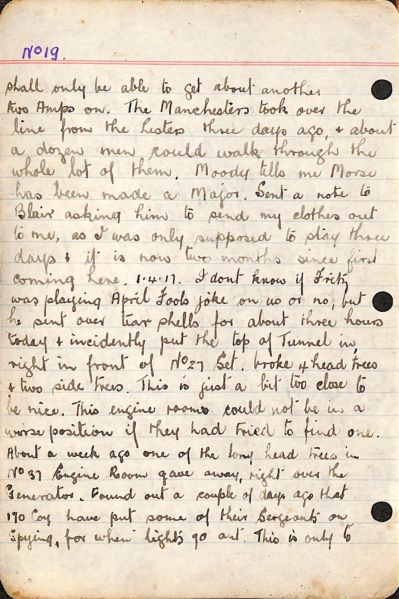 No 19.
shall only be able to get about another
two Amps on. The Manchesters took over the
line from the Lesters three days ago, & about
a dozen men could walk through the
whole lot of them. Moody tells me Morse
has been made a Major. Sent a note to
Blair asking him to send my clothes out
to me, as I was only supposed to stay three
days & it is now two months since first
coming here. 1.4.17. I dont know if Fritz
was playing April Fools joke on us or no, but
he sent over tear shells for about three hours
today & incidently put the top of Tunnel in,
right in front of No 27 Set. broke 4 head trees
& two side trees. This is just a bit too close to
be nice. This engine room could not be in a
worse position if they had tried to find one.
About a week ago one of the long head trees in
No 37 Engine Room gave away, right over the
Generator. Found out a couple of days ago that
170 Coy have put some of their Sergeants on
spying, for when lights go out. This is only to